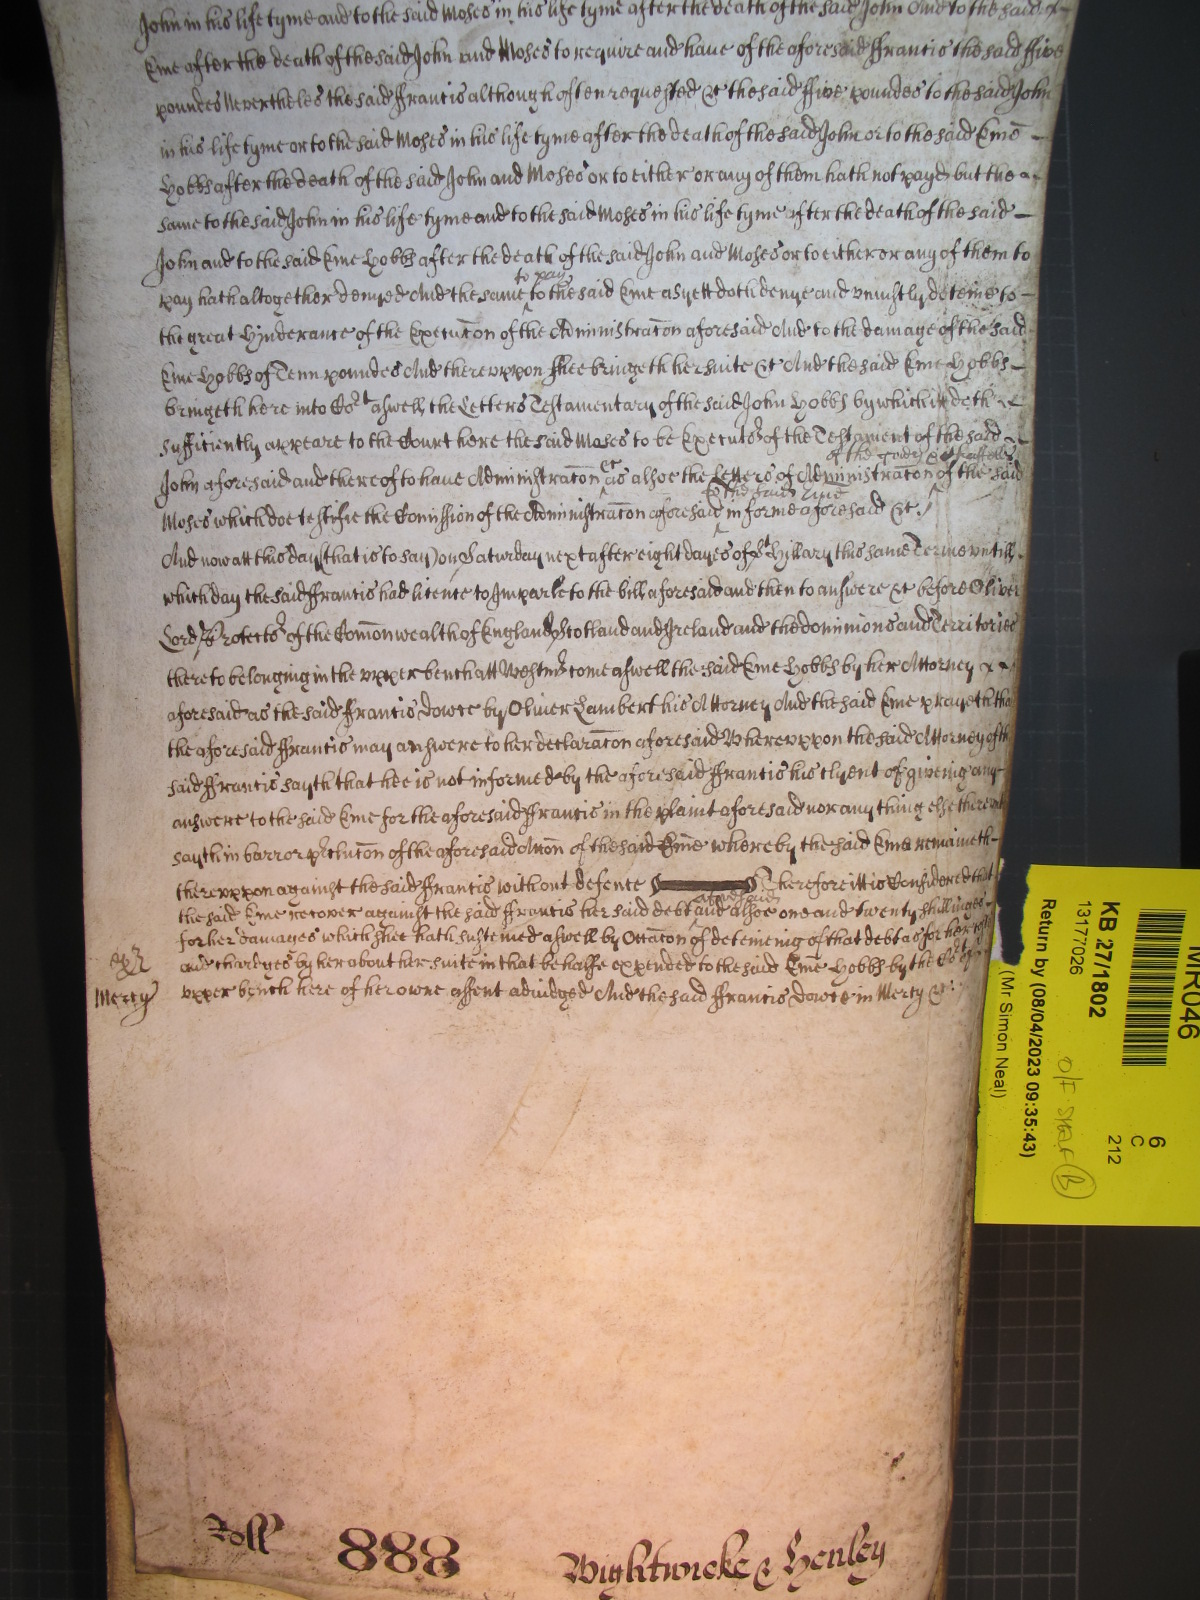 John in his life tyme and to the said Moses in his life tyme after the death of the said John And to the said
Eme after the death of the said John and Moses to require and haue of the aforesaid ffrancis the said ffive
poundes Nevertheles the said ffrancis although often requested &c the said ffive poundes to the said John
in his life tyme or to the said Moses in his life tyme after the death of the said John or to the said Eme
Hobbs after the death of the said John and Moses or to either or any of them hath not payd but the
same to the said John in his life tyme and to the said Moses in his life tyme after the death of the said
John and to the said Eme Hobbs after the death of the said John and Moses or to either or any of them to
pay hath altogether denyed And the same to pay to the said Eme as yett doth denye and vniustly deteine to
the great hynderance of the Execution of the Administracon aforesaid And to the damage of the said
Eme Hobbs of Tenn poundes And therevppon shee bringeth her suite &c And the said Eme Hobbs
bringeth here into Cort aswell the Letters Testamentary of the said John Hobbs by which itt doth
sufficiently appeare to the Court here the said Moses to be Executor of the Testament of the said
John aforesaid and thereof to haue Administracon &c as alsoe the Letters of Administracon of the goods & chattells of the said
Moses which doe testifie the Comission of the Administracon aforesaid to the said Eme in forme aforesaid &c
And now att this day (that is to say) on Saturday next after eight dayes of St Hillary this same Terme vntill
which day the said ffrancis had licence to Imparle to the bill aforesaid and then to answere &c before Oliver
Lord Protector of the Comonwealth of England Scotland and Ireland and the dominions and Territories
thereto belonging in the vpper bench att Westmr come aswell the said Eme Hobbs by her Attorney
aforesaid as the said ffrancis Dowce by Oliver Lambert his Attorney And the said Eme prayeth that
the aforesaid ffrancis may answere to her declaracon aforesaid Wherevppon the said Attorney of the
said ffrancis sayth that hee is not informed by the aforesaid ffrancis his clyent of giveing any
answere to the said Eme for the aforesaid ffrancis in the plaint aforesaid nor any thing else thereat
sayth in barr or preclucon of the aforesaid Accon of the said Eme whereby the said Eme remaineth
therevppon against the said ffrancis without defence Therefore itt is Considered that
the said Eme recover against the said ffrancis her said debt aforesaid and alsoe one and twenty shillinges
for her damages which shee hath susteined aswell by Occacon of deteineing of that debt as for her
and chardges by her about her suite in that behalfe expended to the said Eme Hobbs by the Cort of
vpper bench here of her owne assent adiudged And the said ffrancis Dowce in Mercy &c
Mercy
Roll 888 Wightwicke & Henley
MR046
6
C
212
KB 27/1802
13177026
O/F SHELF B
Return by (08/04/2023 09:35:43)
(Mr Simon Neal)